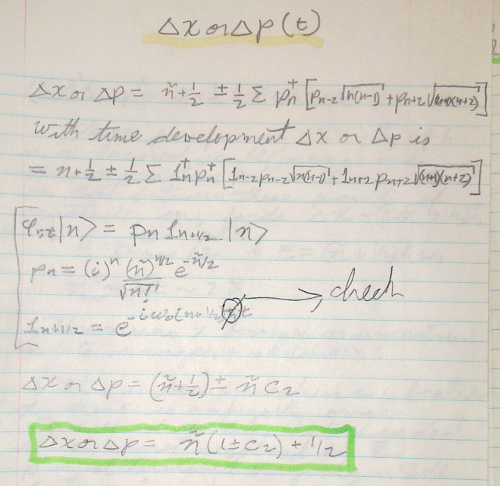 Δx or Δp (t)
Δx or Δp = ñ + 1/2 ± 1/2 Σ pn† [pn-2 √n(n-1) + pn+2 √(n+1)(n+2)]
with time development Δx or Δp is
= n + 1/2 ± 1/2 Σ 1n† pn† [1n-2 pn-2 √n(n-1) + 1n+2 pn+2 √(n+1)(n+2)]
|n> = pn 1n+1/2 |n>
pn = (i)^n (ñ)^n/2 / √n! e^-ñ/2
1n+1/2 = e^-iω0(n+1/2) t → check
Δx or Δp = (ñ + 1/2) ± ñ C2
Δx or Δp = ñ (1 ± C2) + 1/2